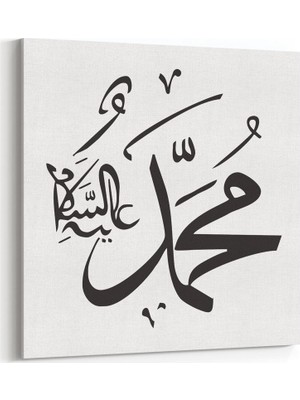 مُحَمَّد
عليه السَّلَام